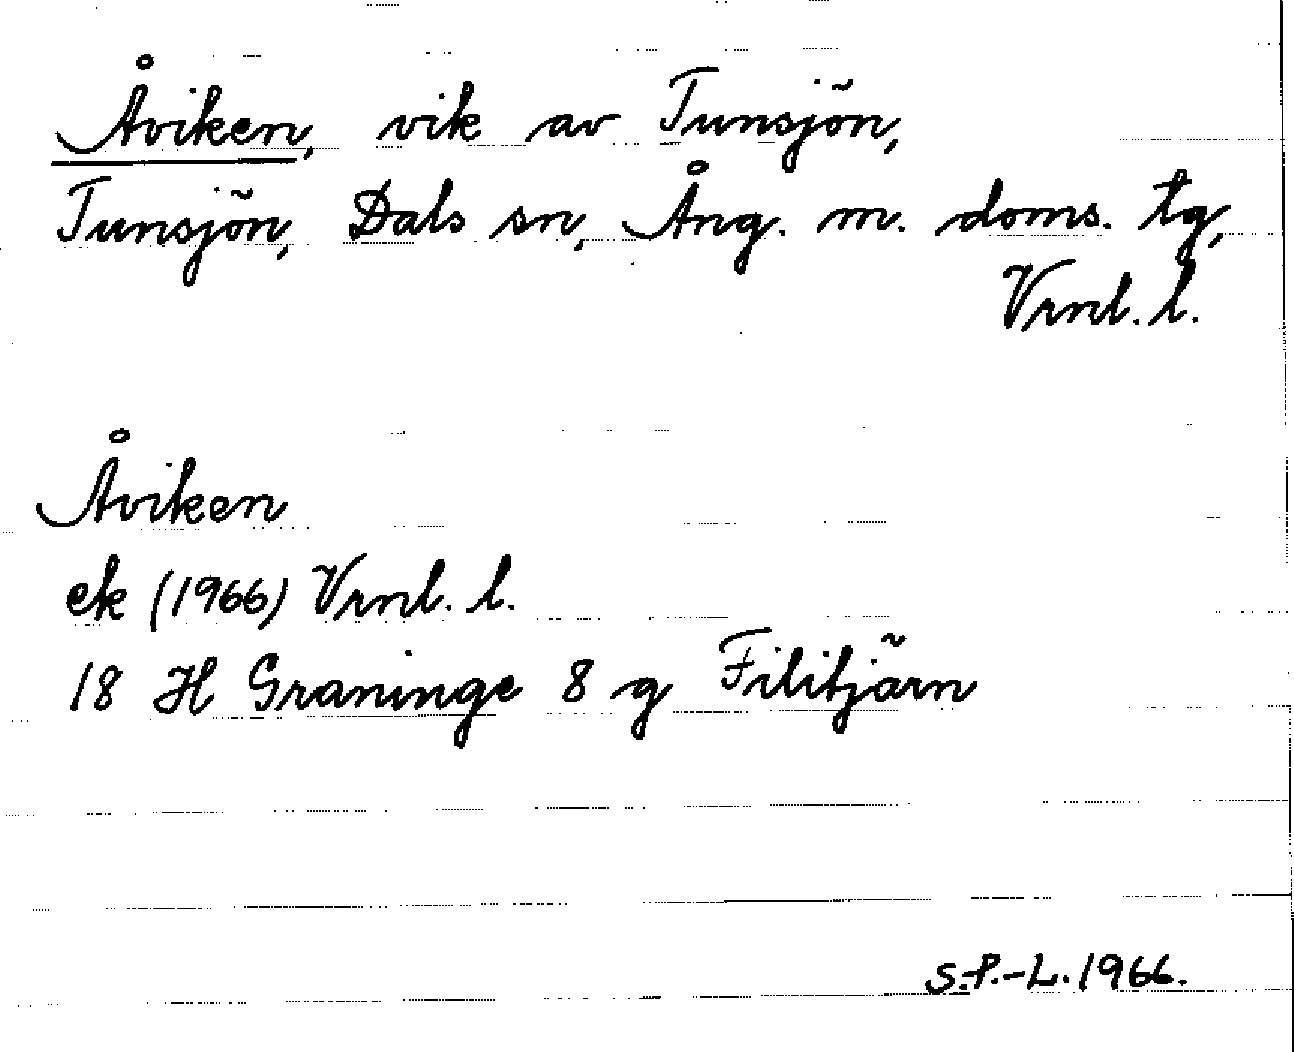 Åviken, vik av Tunsjön,
Tunsjön, Dals sn, Ång. m. doms. tg,
Vrnl. l.
Åviken
ek (1966) Vrnl. l.
18 H Graninge 8 g Filitjärn
S.P.-L. 1966.